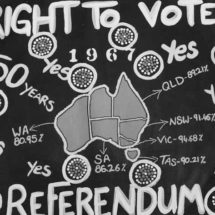 RIGHT TO VOTE
1967
Yes
Yes
50
YEARS
QLD-89.21%
NSW-91.46%
WA
80.95%
Vic-94.68%
SA
86.26%
TAS-90.21%
Yes
Yes
REFERENDUM